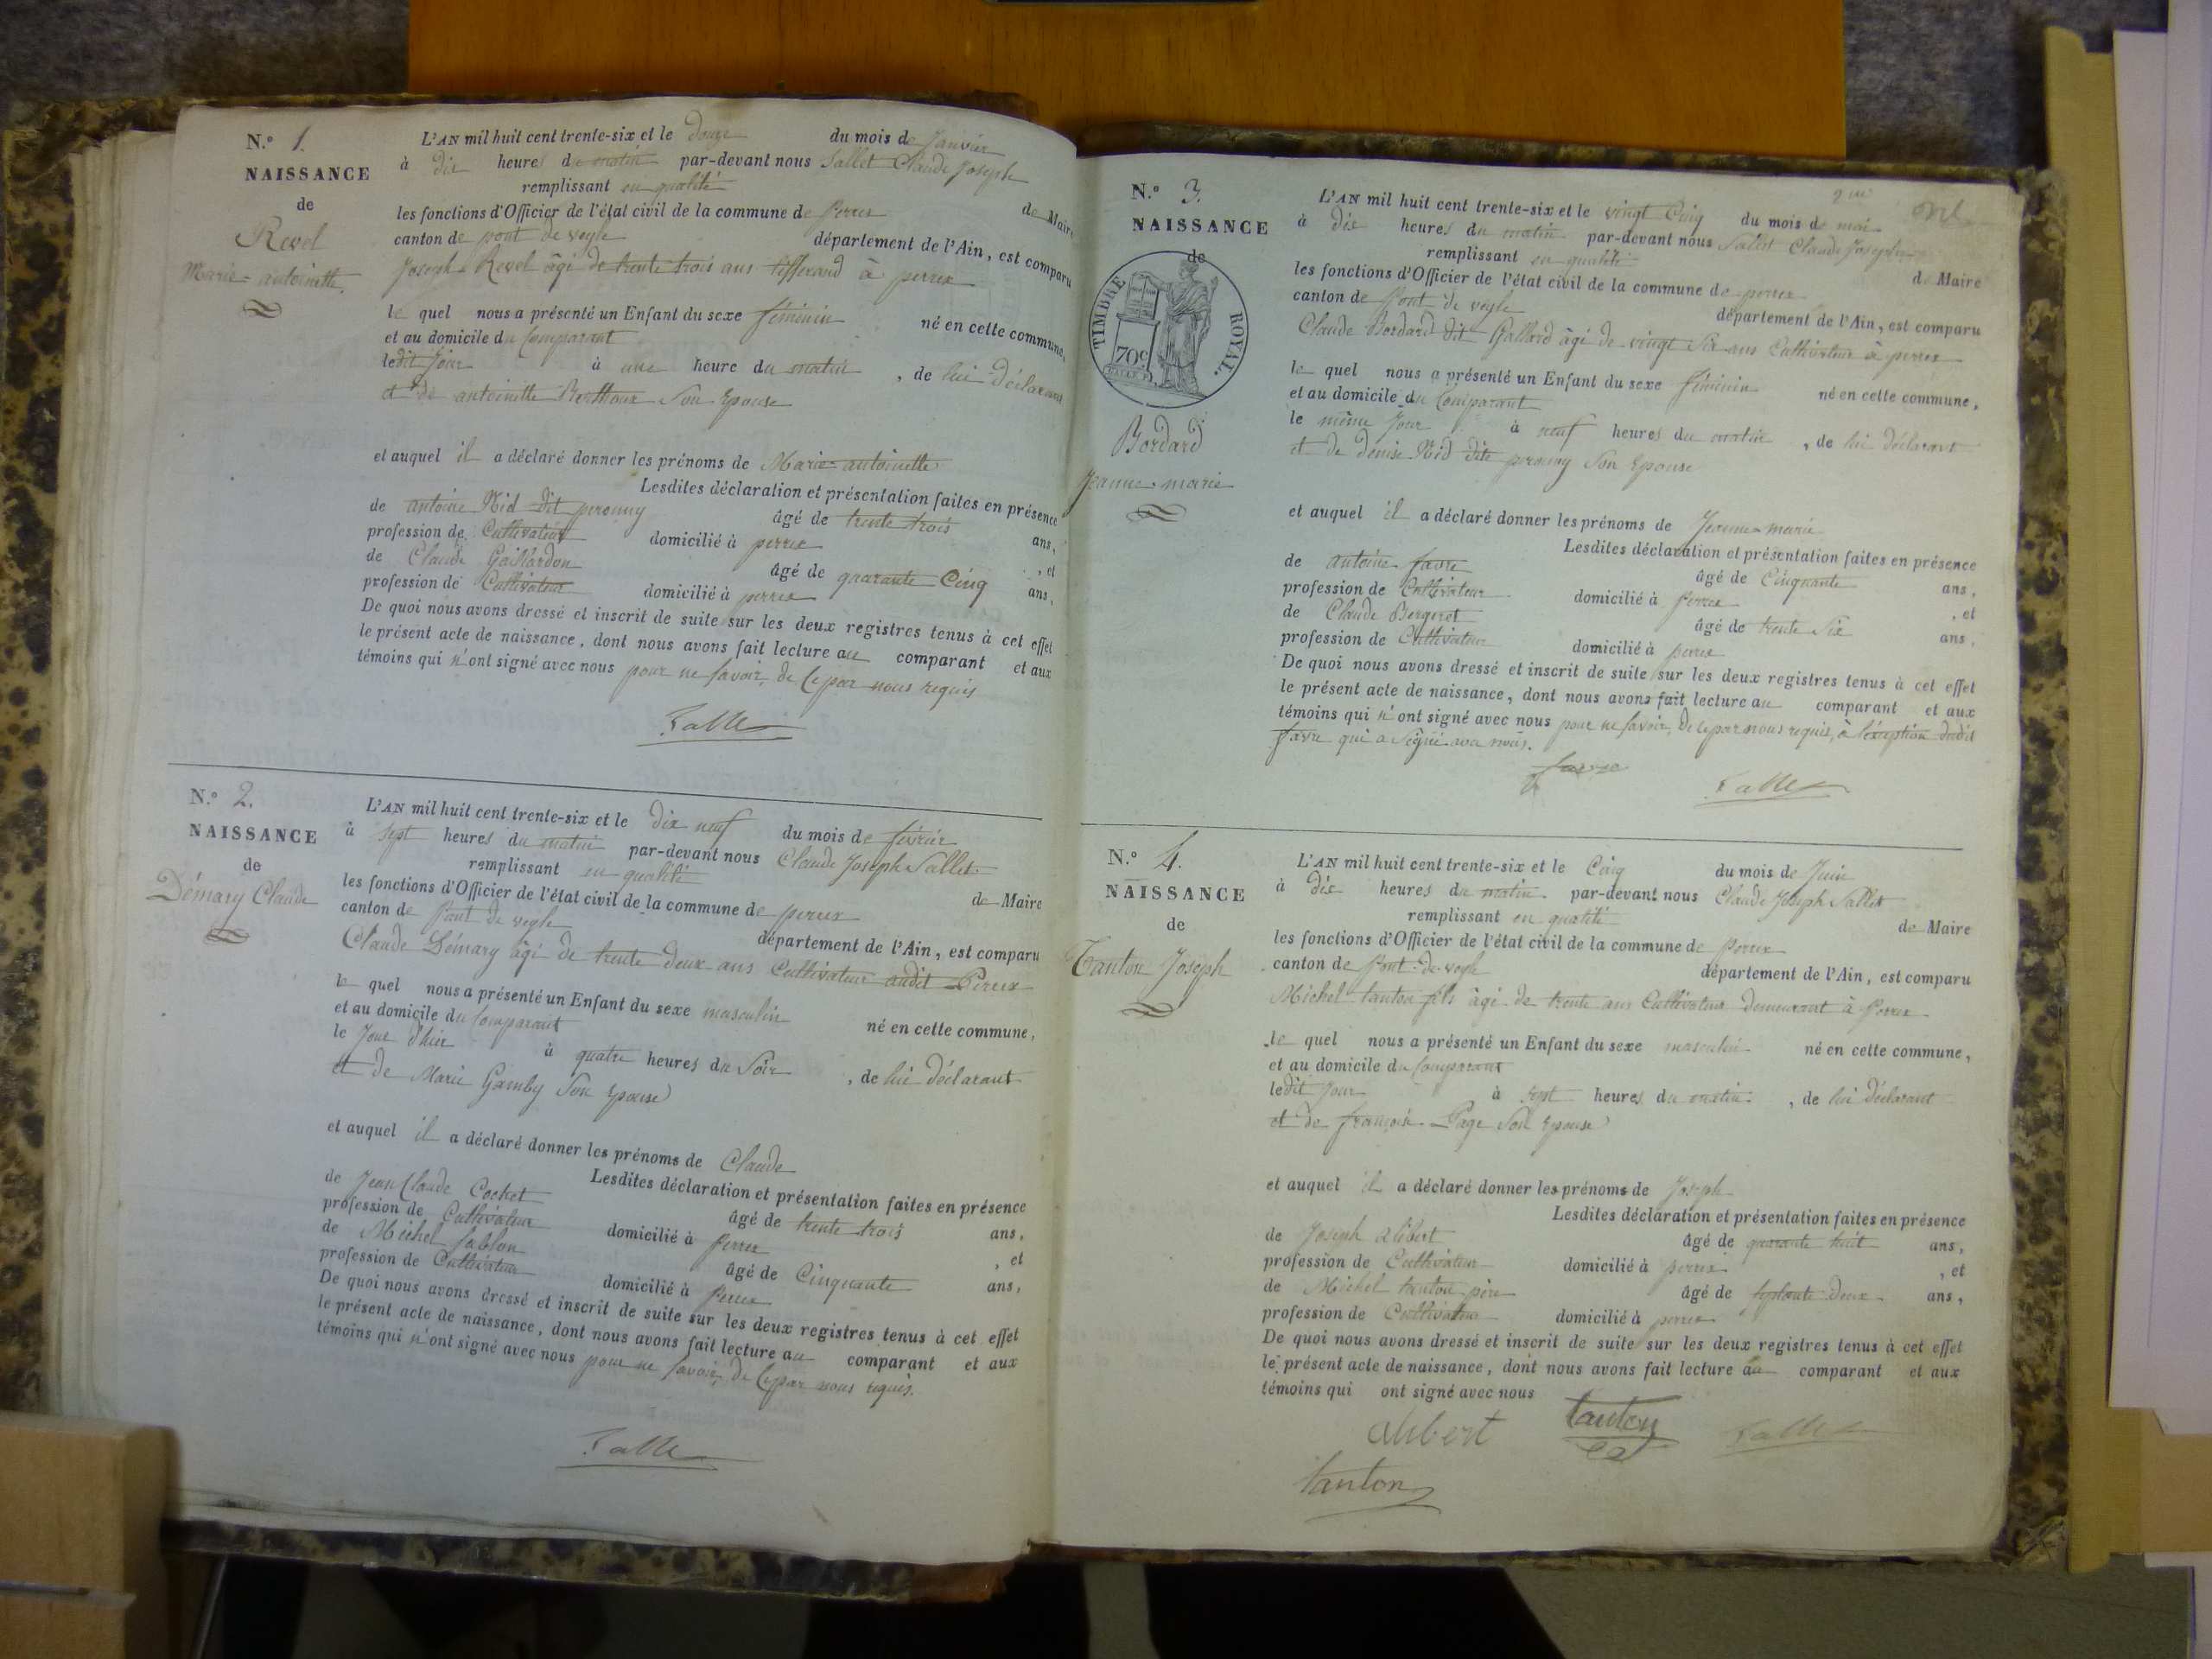 N.° 1.
NAISSANCE
de
Revel
Marie-antoinette.
L'AN mil huit cent trente-six et le douze du mois de Janvier
à dix heures du matin par-devant nous Sallet Claude Joseph
remplissant en qualité de Maire
les fonctions d'Officier de l'état civil de la commune de perrex
canton de pont de veyle département de l'Ain, est comparu
Joseph Revel âgé de trente trois ans tisserand à perrex
le quel nous a présenté un Enfant du sexe féminin né en cette commune,
et au domicile du Comparant
ledit Jour à une heure du matin, de lui déclarant
et de antoinette Son Epouse
et auquel il a déclaré donner les prénoms de Marie-antoinette
Lesdites déclaration et présentation faites en présence
de antoine Nid dit perouny âgé de trente trois ans,
profession de Cultivateur domicilié à perrex, et
de Claude Gaillardon âgé de quarante Cinq ans,
profession de Cultivateur domicilié à perrex
De quoi nous avons dressé et inscrit de suite sur les deux registres tenus à cet effet
le présent acte de naissance, dont nous avons fait lecture au comparant et aux
témoins qui n'ont signé avec nous pour ne savoir, de ce par nous requis
Sallet
N.° 2.
NAISSANCE
de
Démary Claude
L'AN mil huit cent trente-six et le dix neuf du mois de février
à sept heures du matin par-devant nous Claude Joseph Sallet
remplissant en qualité de Maire
les fonctions d'Officier de l'état civil de la commune de perrex
canton de Pont de veyle département de l'Ain, est comparu
Claude Démary âgé de trente deux ans Cultivateur audit Perrex
le quel nous a présenté un Enfant du sexe masculin né en cette commune,
et au domicile du Comparant
le Jour d'hier à quatre heures du Soir, de lui déclarant
et de Marie Gamby Son Epouse
et auquel il a déclaré donner les prénoms de Claude
Lesdites déclaration et présentation faites en présence
de Jean Claude Cochet âgé de trente trois ans,
profession de Cultivateur domicilié à perrex, et
de Michel Sablon âgé de Cinquante ans,
profession de Cultivateur domicilié à perrex
De quoi nous avons dressé et inscrit de suite sur les deux registres tenus à cet effet
le présent acte de naissance, dont nous avons fait lecture au comparant et aux
témoins qui n'ont signé avec nous pour ne savoir, de ce par nous requis.
Sallet
N.° 3.
NAISSANCE
de
TIMBRE ROYAL.
70c
Bordard
Jeanne-marie
L'AN mil huit cent trente-six et le vingt Cinq du mois de mai
à dix heures du matin par-devant nous Sallet Claude Joseph
remplissant en qualité de Maire
les fonctions d'Officier de l'état civil de la commune de perrex
canton de Pont de veyle département de l'Ain, est comparu
Claude Bordard dit Gallard âgé de vingt Six ans Cultivateur à perrex
le quel nous a présenté un Enfant du sexe féminin né en cette commune,
et au domicile du Comparant
le même Jour à neuf heures du matin, de lui déclarant
et de denise Nid dite perouny Son Epouse
et auquel il a déclaré donner les prénoms de Jeanne-marie
Lesdites déclaration et présentation faites en présence
de antoine favre âgé de Cinquante ans,
profession de Cultivateur domicilié à perrex, et
de Claude Bergeret âgé de trente Six ans,
profession de Cultivateur domicilié à perrex
De quoi nous avons dressé et inscrit de suite sur les deux registres tenus à cet effet
le présent acte de naissance, dont nous avons fait lecture au comparant et aux
témoins qui n'ont signé avec nous pour ne savoir, de ce par nous requis, à l'exception dudit
favre qui a Signé avec nous.
favre Sallet
N.° 4.
NAISSANCE
de
Tanton Joseph
L'AN mil huit cent trente-six et le Cinq du mois de Juin
à dix heures du matin par-devant nous Claude Joseph Sallet
remplissant en qualité de Maire
les fonctions d'Officier de l'état civil de la commune de Perrex
canton de Pont-de-veyle département de l'Ain, est comparu
Michel tanton fils âgé de trente ans Cultivateur demeurant à Perrex
le quel nous a présenté un Enfant du sexe masculin né en cette commune,
et au domicile du Comparant
ledit Jour à sept heures du matin, de lui déclarant
et de françoise Page Son Epouse
et auquel il a déclaré donner les prénoms de Joseph
Lesdites déclaration et présentation faites en présence
de Joseph alibert âgé de quarante huit ans,
profession de Cultivateur domicilié à perrex, et
de Michel tanton père âgé de septante deux ans,
profession de Cultivateur domicilié à perrex
De quoi nous avons dressé et inscrit de suite sur les deux registres tenus à cet effet
le présent acte de naissance, dont nous avons fait lecture au comparant et aux
témoins qui ont signé avec nous
alibert tanton Sallet
tanton